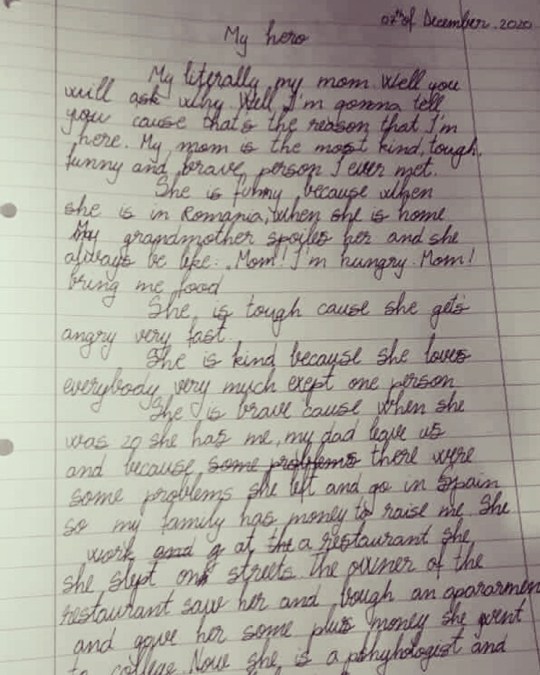 07th of December 2020
My hero
My literally my mom. Well you
will ask why. Well, I'm gonna tell
you cause that's the reason that I'm
here. My mom is the most kind, tough,
funny and brave person I ever met.
She is funny because when
she is in Romania, when she is home
My grandmother spoiles her and she
always be like: „Mom! I'm hungry. Mom!
bring me food
She is tough cause she gets
angry very fast.
She is kind because she loves
everybody very much exept one person
She is brave cause when she
was 20 she has me, my dad leave us
and because some problems there were
some problems she left and go in Spain
so my family has money to raise me. She
work and g at the a restaurant she
she slept on streets. The owner of the
restaurant saw her and bough an apararmen
and gave her some plus money she went
to college. Now she is a pshyhologist and